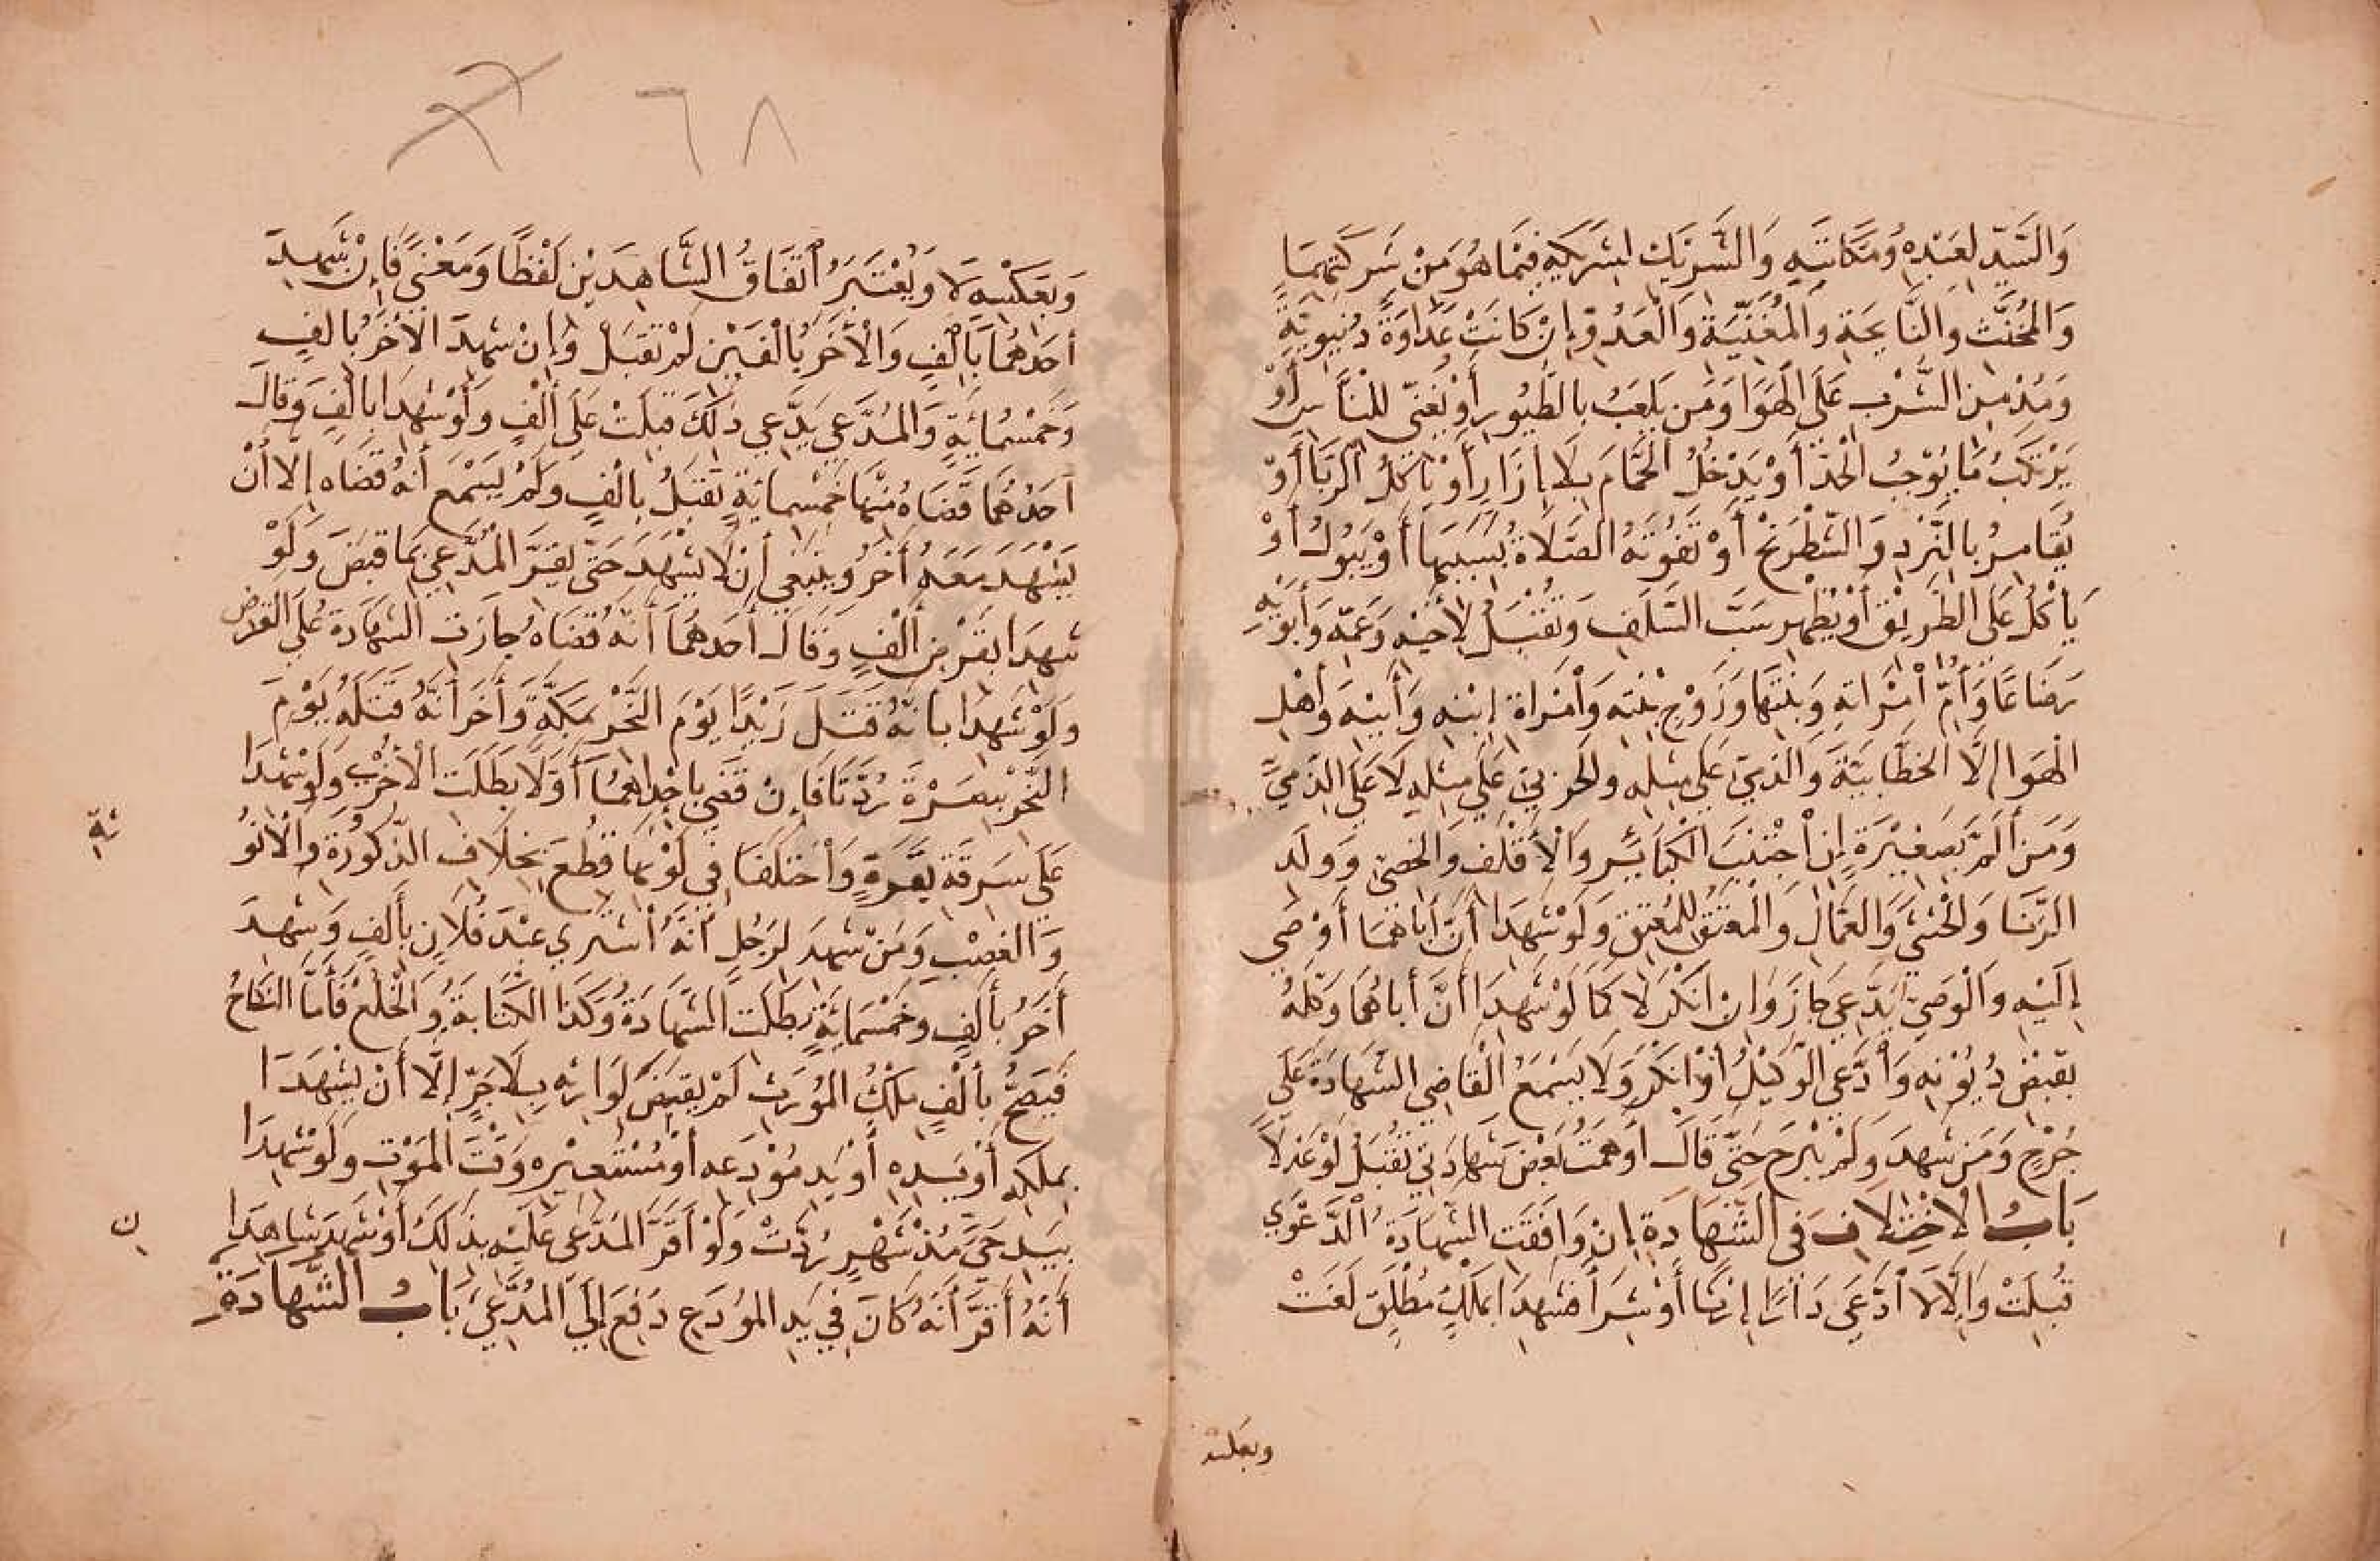 وَالسَّيِّدِ لِعَبْدِهِ وَمُكَاتَبِهِ وَالشَّرِيْكِ لِشَرِيْكِهِ فِيْمَا هُوَ مِنْ شِرْكَتِهِمَا
وَالْمُخَنَّثِ وَالنَّايِحَةِ وَالْمُغَنِّيَةِ وَالْعَدُوِّ إِنْ كَانَتْ عَدَاوَةً دُنْيَوِيَّةً
وَمُدْمِنِ الشُّرْبِ عَلَى الْهَوَا وَمَنْ يَلْعَبُ بِالطُّيُورِ أَوْ يُغَنِّي لِلنَّاسِ أَوْ
يَرْتَكِبُ مَا يُوْجِبُ الْحَدَّ أَوْ يَدْخُلُ الْحَمَّامَ بِلَا إِزَارٍ أَوْ يَاْكُلُ الرِّبَا أَوْ
يُقَامِرُ بِالنَّرْدِ وَالشِّطْرَنْجِ أَوْ تَفُوْتُهُ الصَّلَاةُ بِسَبَبِهَا أَوْ يَبُوْلُ أَوْ
يَأْكُلُ عَلَى الطَّرِيْقِ أَوْ يُظْهِرُ سَبَّ السَّلَفِ وَتُقْبَلُ لِأَخِيْهِ وَعَمِّهِ وَأَبَوَيْهِ
رَضَاعًا وَأُمِّ اْمْرَاتِهِ وَبِنْتِهَا وَزَوْجِ بِنْتِهِ وَاْمْرَاةِ إِبْنِهِ وَأَبِيْهِ وَأَهْلِ
الْهَوَا إِلَّا الْخَطَّابِيَّةَ وَالذِّمِيِّ عَلَى مِثْلِهِ وَالْحَرْبِيِّ عَلَى مِثْلِهِ لَا عَلَى الذِّمِيِّ
وَمَنْ أَلَمَّ بِصَغِيْرَةٍ إِنِ اْجْتَنَبَ الْكَبَايِرَ وَالْأَقْلَفِ وَالْخَصِيِّ وَوَلَدِ
الزِّنَا وَالْخُنْثَى وَالْعُمَّالِ وَالْمُعْتَقِ لِلْمُعْتِقِ وَلَوْ شَهِدَا أَنَّ أَبَاهُمَا أَوْصَى
إِلَيْهِ وَالْوَصِيُّ يَدَّعِي جَازَ وَإِنْ أَنْكَرَ لَا كَمَا لَوْ شَهِدَا أَنَّ أَبَاهُمَا وَكَّلَهُ
بِقَبْضِ دُيُوْنِهِ وَاْدَّعَى الْوَكِيْلُ أَوْ أَنْكَرَ وَلَا يَسْمَعُ الْقَاضِي الشَّهَادَةَ عَلَى
جَرْحٍ وَمَنْ شَهِدَ وَلَمْ يَبْرَحْ حَتَّى قَالَ أَوْهَمْتُ بَعْضَ شَهَادَتِي تُقْبَلُ لَوْ عَدْلًا
بَابُ الْاخْتِلَافِ فِي الشَّهَادَةِ إِنْ وَافَقَتِ الشَّهَادَةُ الدَّعْوَى
قُبِلَتْ وَإِلَّا لَا اْدَّعَى دَارًا إِرْثًا أَوْ شِرَاً فَشَهِدَا بِمِلْكٍ مُطْلَقٍ لَغَتْ
وبعكسه
٦٨
وَبِعَكْسِهِ لَا وَيُعْتَبَرُ اْتِّفَاقُ الشَّاهِدَيْنِ لَفْظًا وَمَعْنًى فَإِنْ شَهِدَ
أَحَدُهُمَا بِأَلْفٍ وَالْآخَرُ بِأَلْفَيْنِ لَمْ تُقْبَلْ وَإِنْ شَهِدَ الْآخَرُ بِأَلْفٍ
وَخَمْسُمِائَةٍ وَالْمُدَّعِي يَدَّعِي ذَلِكَ قُبِلَتْ عَلَى أَلْفٍ وَلَوْ شَهِدَا بِأَلْفٍ وَقَالَ
أَحَدُهُمَا قَضَاهُ مِنْهَا خَمْسُمِايَةٍ تُقْبَلُ بِأَلْفٍ وَلَمْ يُسْمَعْ أَنَّهُ قَضَاهُ إِلَّا أَنْ
يَشْهَدَ مَعَهُ أَخَرُ وَيَنْبَغِي أَنْ لَا يَشْهَدَ حَتَّى يُقِرَّ الْمُدَّعِي بِمَا قَبَضَ وَلَوْ
شَهِدَا بِقَرْضِ أَلْفٍ وَقَالَ أَحَدُهُمَا أَنَّهُ قَضَاهُ جَازَتِ الشَّهَادَةُ عَلَى الْقَرْضِ
وَلَوْ شَهِدَا بِأَنَّهُ قَتَلَ زَيْدًا يَوْمَ النَّحْرِ بِمَكَّةَ وَأَخَرَ أَنَّهُ قَتَلَهُ يَوْمَ
النَّحْرِ بِبَصْرَةَ رُدَّتَا فَإِنْ قَضَى بِإِحْدَاهُمَا أَوَّلًا بَطَلَتِ الْأُخْرَى وَلَوْ شَهِدَا
عَلَى سَرِقَةِ بَقَرَةٍ وَاْخْتَلَفَا فِي لَوْنِهَا قُطِعَ بِخِلَافِ الذُّكُوْرَةِ وَالْأُنُوْ
ثَةِ
وَالْغَصْبِ وَمَنْ شَهِدَ لِرَجُلٍ أَنَّهُ اْشْتَرَى عَبْدَ فُلَانٍ بِأَلْفٍ وَشَهِدَ
أَخَرُ بِأَلْفٍ وَخَمْسُمِائَةٍ بَطَلَتِ الشَّهَادَةُ وَكَذَا الْكِتَابَةُ وَالْخُلْعُ فَأَمَّا النِّكَاحُ
فَيَصِحُّ بِأَلْفٍ مِلْكُ الْمُوَرِّثِ لَمْ يُقْضَ لِوَارِثِهِ بِلَا جَرٍّ إِلَّا أَنْ يَشْهَدَا
بِمِلْكِهِ أَوْ يَدِهِ أَوْ يَدِ مُوْدَعِهِ أَوْ مُسْتَعِيْرِهِ وَقْتَ الْمَوْتِ وَلَوْ شَهِدَا
بِيَدِ حَيٍّ مُذْ شَهْرٍ رُدَّتْ وَلَوْ أَقَرَّ الْمُدَّعَى عَلَيْهِ بِذَلِكَ أَوْ شَهِدَ شَاهِدَا
نِ
أَنَّهُ أَقَرَّ أَنَّهُ كَانَ فِي يَدِ الْمُوْدَعِ دَفَعَ إِلَى الْمُدَّعِي بَابُ الشَّهَادَةِ